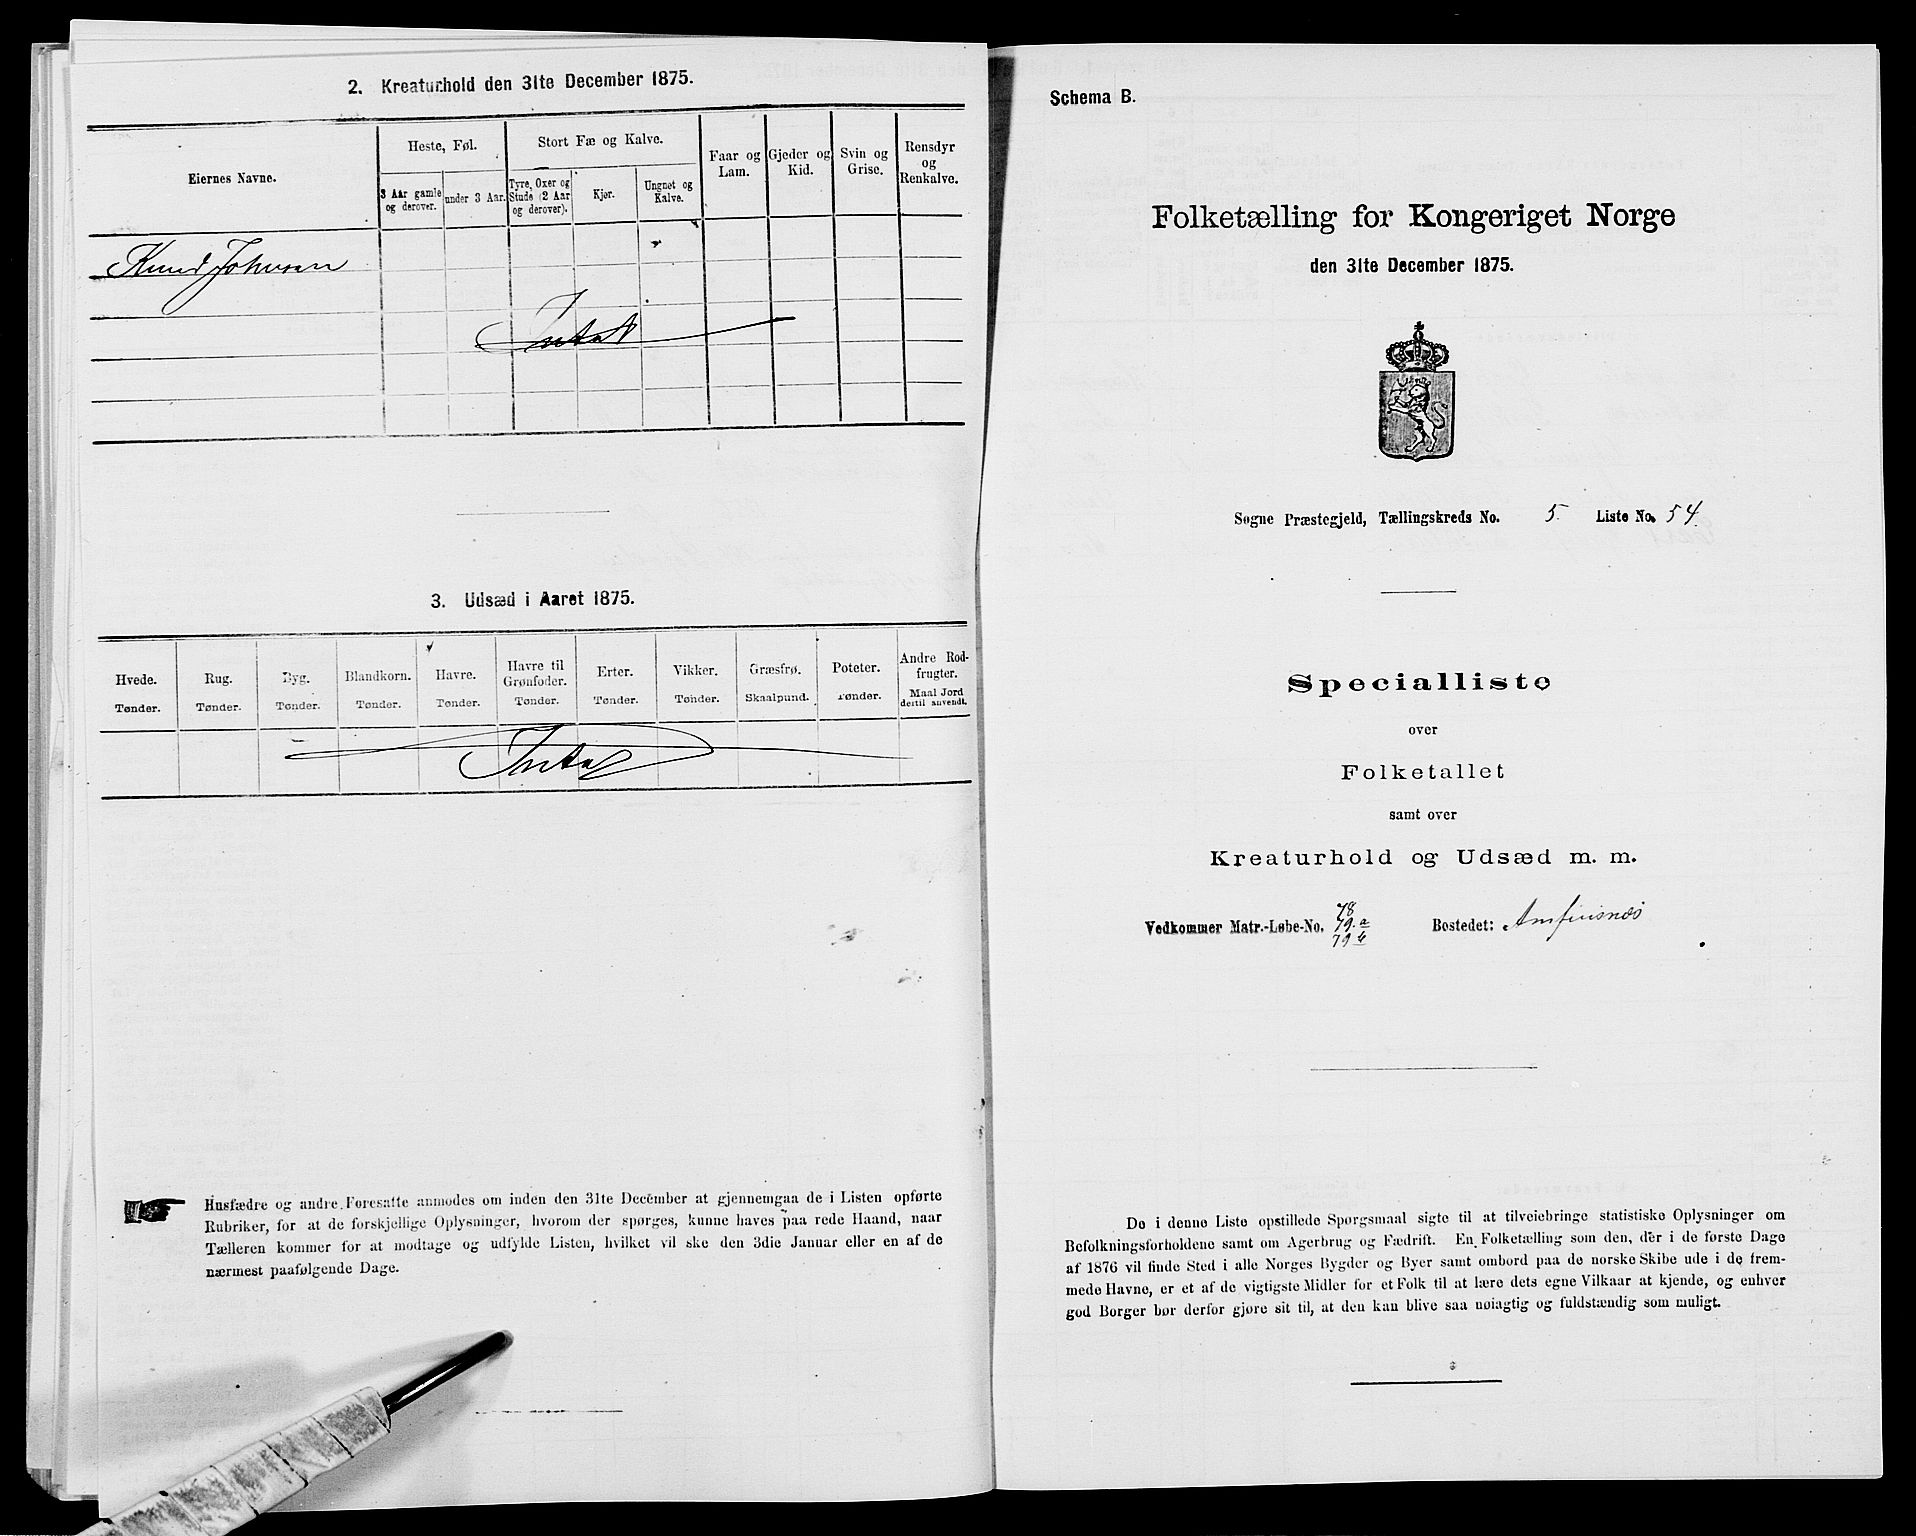 2. Kreaturhold den 31te December 1875.
Eiernes Navne.
Heste, Føl.
Stort Fæ og Kalve.
Faar og Lam.
Gjeder og Kid.
Svin og Grise.
Rensdyr og Renkalve.
3 Aar gamle og derover.
under 3 Aar.
Tyre, Oxer og Stude (2 Aar og derover).
Kjør.
Ungnøt og Kalve.
Knud Johnsen
Intet
3. Udsæd i Aaret 1875.
Hvede.
Rug.
Byg.
Blandkorn.
Havre.
Havre til Grønfoder.
Erter.
Vikker.
Græsfrø.
Poteter.
Andre Rodfrugter.
Tønder.
Tønder.
Tønder.
Tønder.
Tønder.
Tønder.
Tønder.
Tønder.
Skaalpund.
Tønder.
Maal Jord dertil anvendt.
Intet
Husfædre og andre Foresatte anmodes om inden den 31te December at gjennemgaa de i Listen opførte
Rubriker, for at de forskjellige Oplysninger, hvorom der spørges, kunne haves paa rede Haand, naar
Tælleren kommer for at modtage og udfylde Listen, hvilket vil ske den 3die Januar eller en af de
nærmest paafølgende Dage.
Schema B.
Folketælling for Kongeriget Norge
den 31te December 1875.
Søgne Præstegjeld, Tællingskreds No. 5. Liste No. 54.
Specialliste
over
Folketallet
samt over
Kreaturhold og Udsæd m. m.
Vedkommer Matr.-Løbe-No. 78 79.a 79 b Bostedet: Amfinsnæs
De i denne Liste opstillede Spørgsmaal sigte til at tilveiebringe statistiske Oplysninger om
Befolkningsforholdene samt om Agerbrug og Fædrift. En Folketælling som den, der i de første Dage
af 1876 vil finde Sted i alle Norges Bygder og Byer samt ombord paa de norske Skibe ude i de frem-
mede Havne, er et af de vigtigste Midler for et Folk til at lære dets egne Vilkaar at kjende, og enhver
god Borger bør derfor gjøre sit til, at den kan blive saa nøiagtig og fuldstændig som muligt.